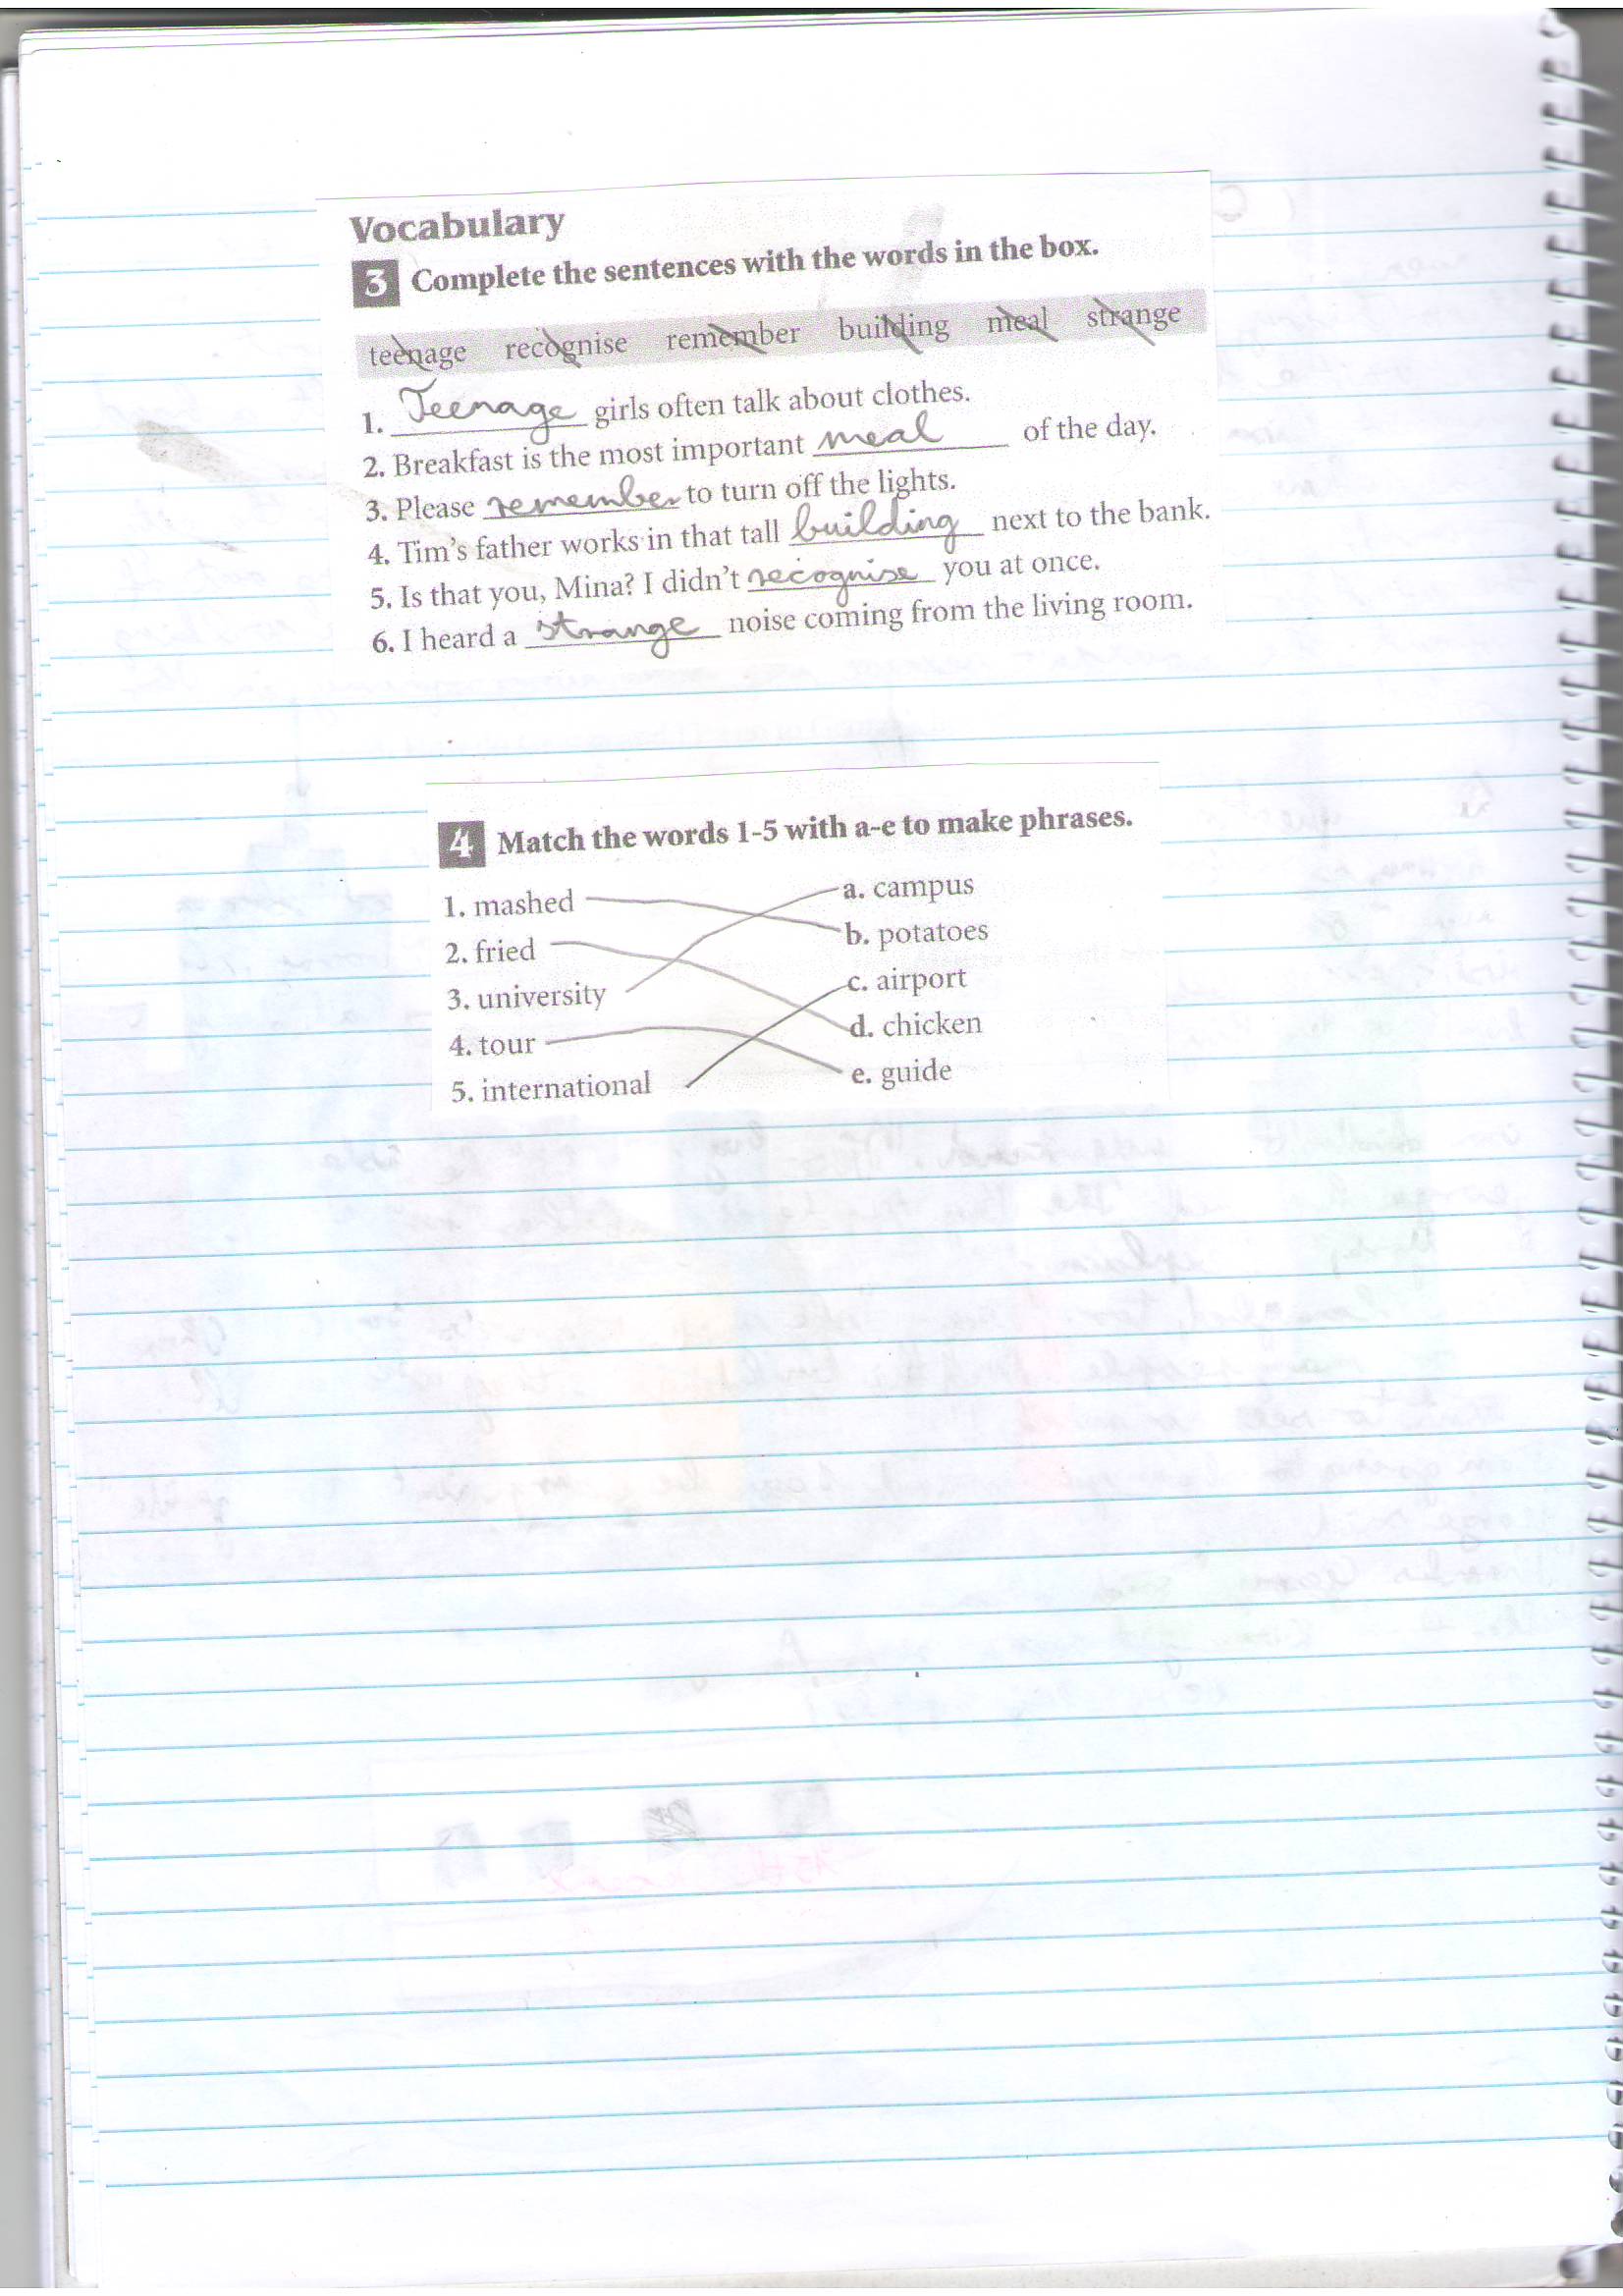 Vocabulary
3 Complete the sentences with the words in the box.
teenage recognise remember building meal strange
1. Teenage girls often talk about clothes.
2. Breakfast is the most important meal of the day.
3. Please remember to turn off the lights.
4. Tim's father works in that tall building next to the bank.
5. Is that you, Mina? I didn't recognise you at once.
6. I heard a strange noise coming from the living room.
4 Match the words 1-5 with a-e to make phrases.
1. mashed a. campus
2. fried b. potatoes
3. university c. airport
4. tour d. chicken
5. international e. guide